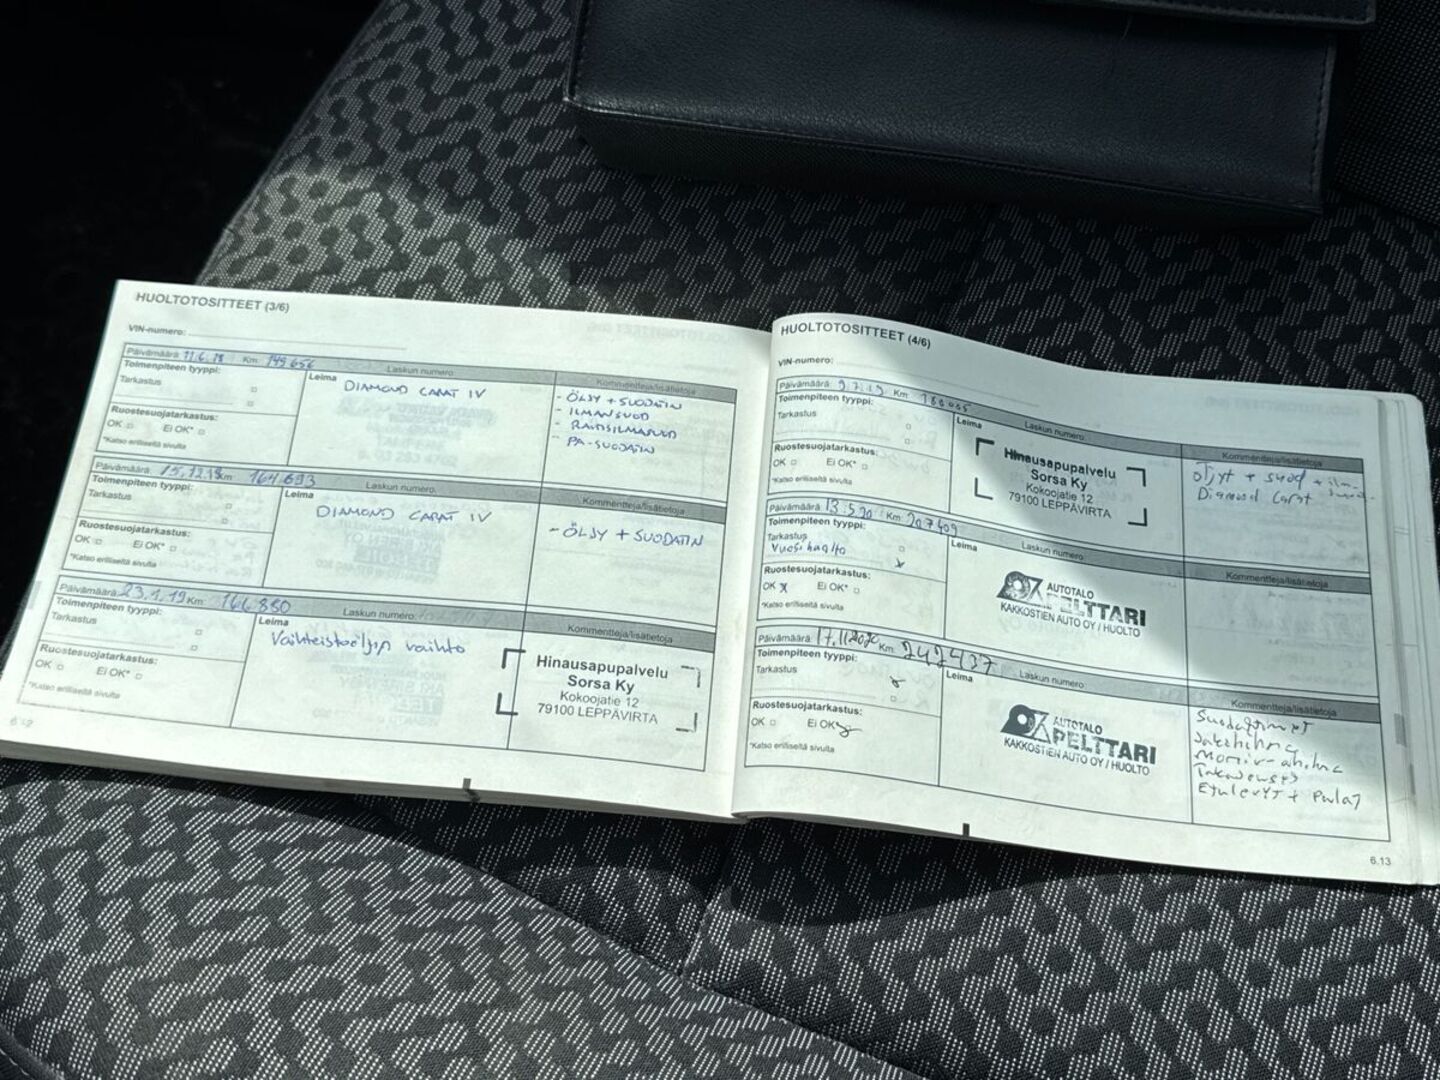 HUOLTOTOSITTEET (3/6)
VIN-numero:
Päivämäärä: 11.6.18 Km: 149.656
Toimenpiteen tyyppi:
Tarkastus
Ruostesuojatarkastus:
OK Ei OK*
*Katso erilliseltä sivulta
Leima Laskun numero:
DIAMOND CARAT IV
Kommentteja/lisätietoja
- ÖLJY + SUODATIN
- ILMANSUOD
- PA-SUODATIN
Päivämäärä: 15.12.18 Km 164.693
Toimenpiteen tyyppi:
Tarkastus
Ruostesuojatarkastus:
OK Ei OK*
*Katso erilliseltä sivulta
Leima Laskun numero:
DIAMOND CARAT IV
Kommentteja/lisätietoja
- ÖLJY + SUODATIN
Päivämäärä: 23.1.19 Km: 166.880
Toimenpiteen tyyppi:
Tarkastus
Ruostesuojatarkastus:
OK Ei OK*
*Katso erilliseltä sivulta
Leima Laskun numero:
Vaihteistoöljyn vaihto
Hinausapupalvelu
Sorsa Ky
Kokoojatie 12
79100 LEPPÄVIRTA
Kommentteja/lisätietoja
HUOLTOTOSITTEET (4/6)
VIN-numero:
Päivämäärä: 9.7.19 Km:
Toimenpiteen tyyppi:
Tarkastus
Ruostesuojatarkastus:
OK Ei OK*
*Katso erilliseltä sivulta
Leima Laskun numero:
Hinausapupalvelu
Sorsa Ky
Kokoojatie 12
79100 LEPPÄVIRTA
Kommentteja/lisätietoja
Öljyt + suod +
Diamond Carat
Päivämäärä: 13.5.20 Km: 207409
Toimenpiteen tyyppi:
Tarkastus
Vuosihuolto
Ruostesuojatarkastus:
OK x Ei OK*
*Katso erilliseltä sivulta
Leima Laskun numero:
AUTOTALO
PELTTARI
KAKKOSTIEN AUTO OY / HUOLTO
Kommentteja/lisätietoja
Päivämäärä: 17.11.2020 Km: 242437
Toimenpiteen tyyppi:
Tarkastus
Ruostesuojatarkastus:
OK Ei OK*
*Katso erilliseltä sivulta
Leima Laskun numero:
AUTOTALO
PELTTARI
KAKKOSTIEN AUTO OY / HUOLTO
Kommentteja/lisätietoja
Etulevyt + Palat
6.13